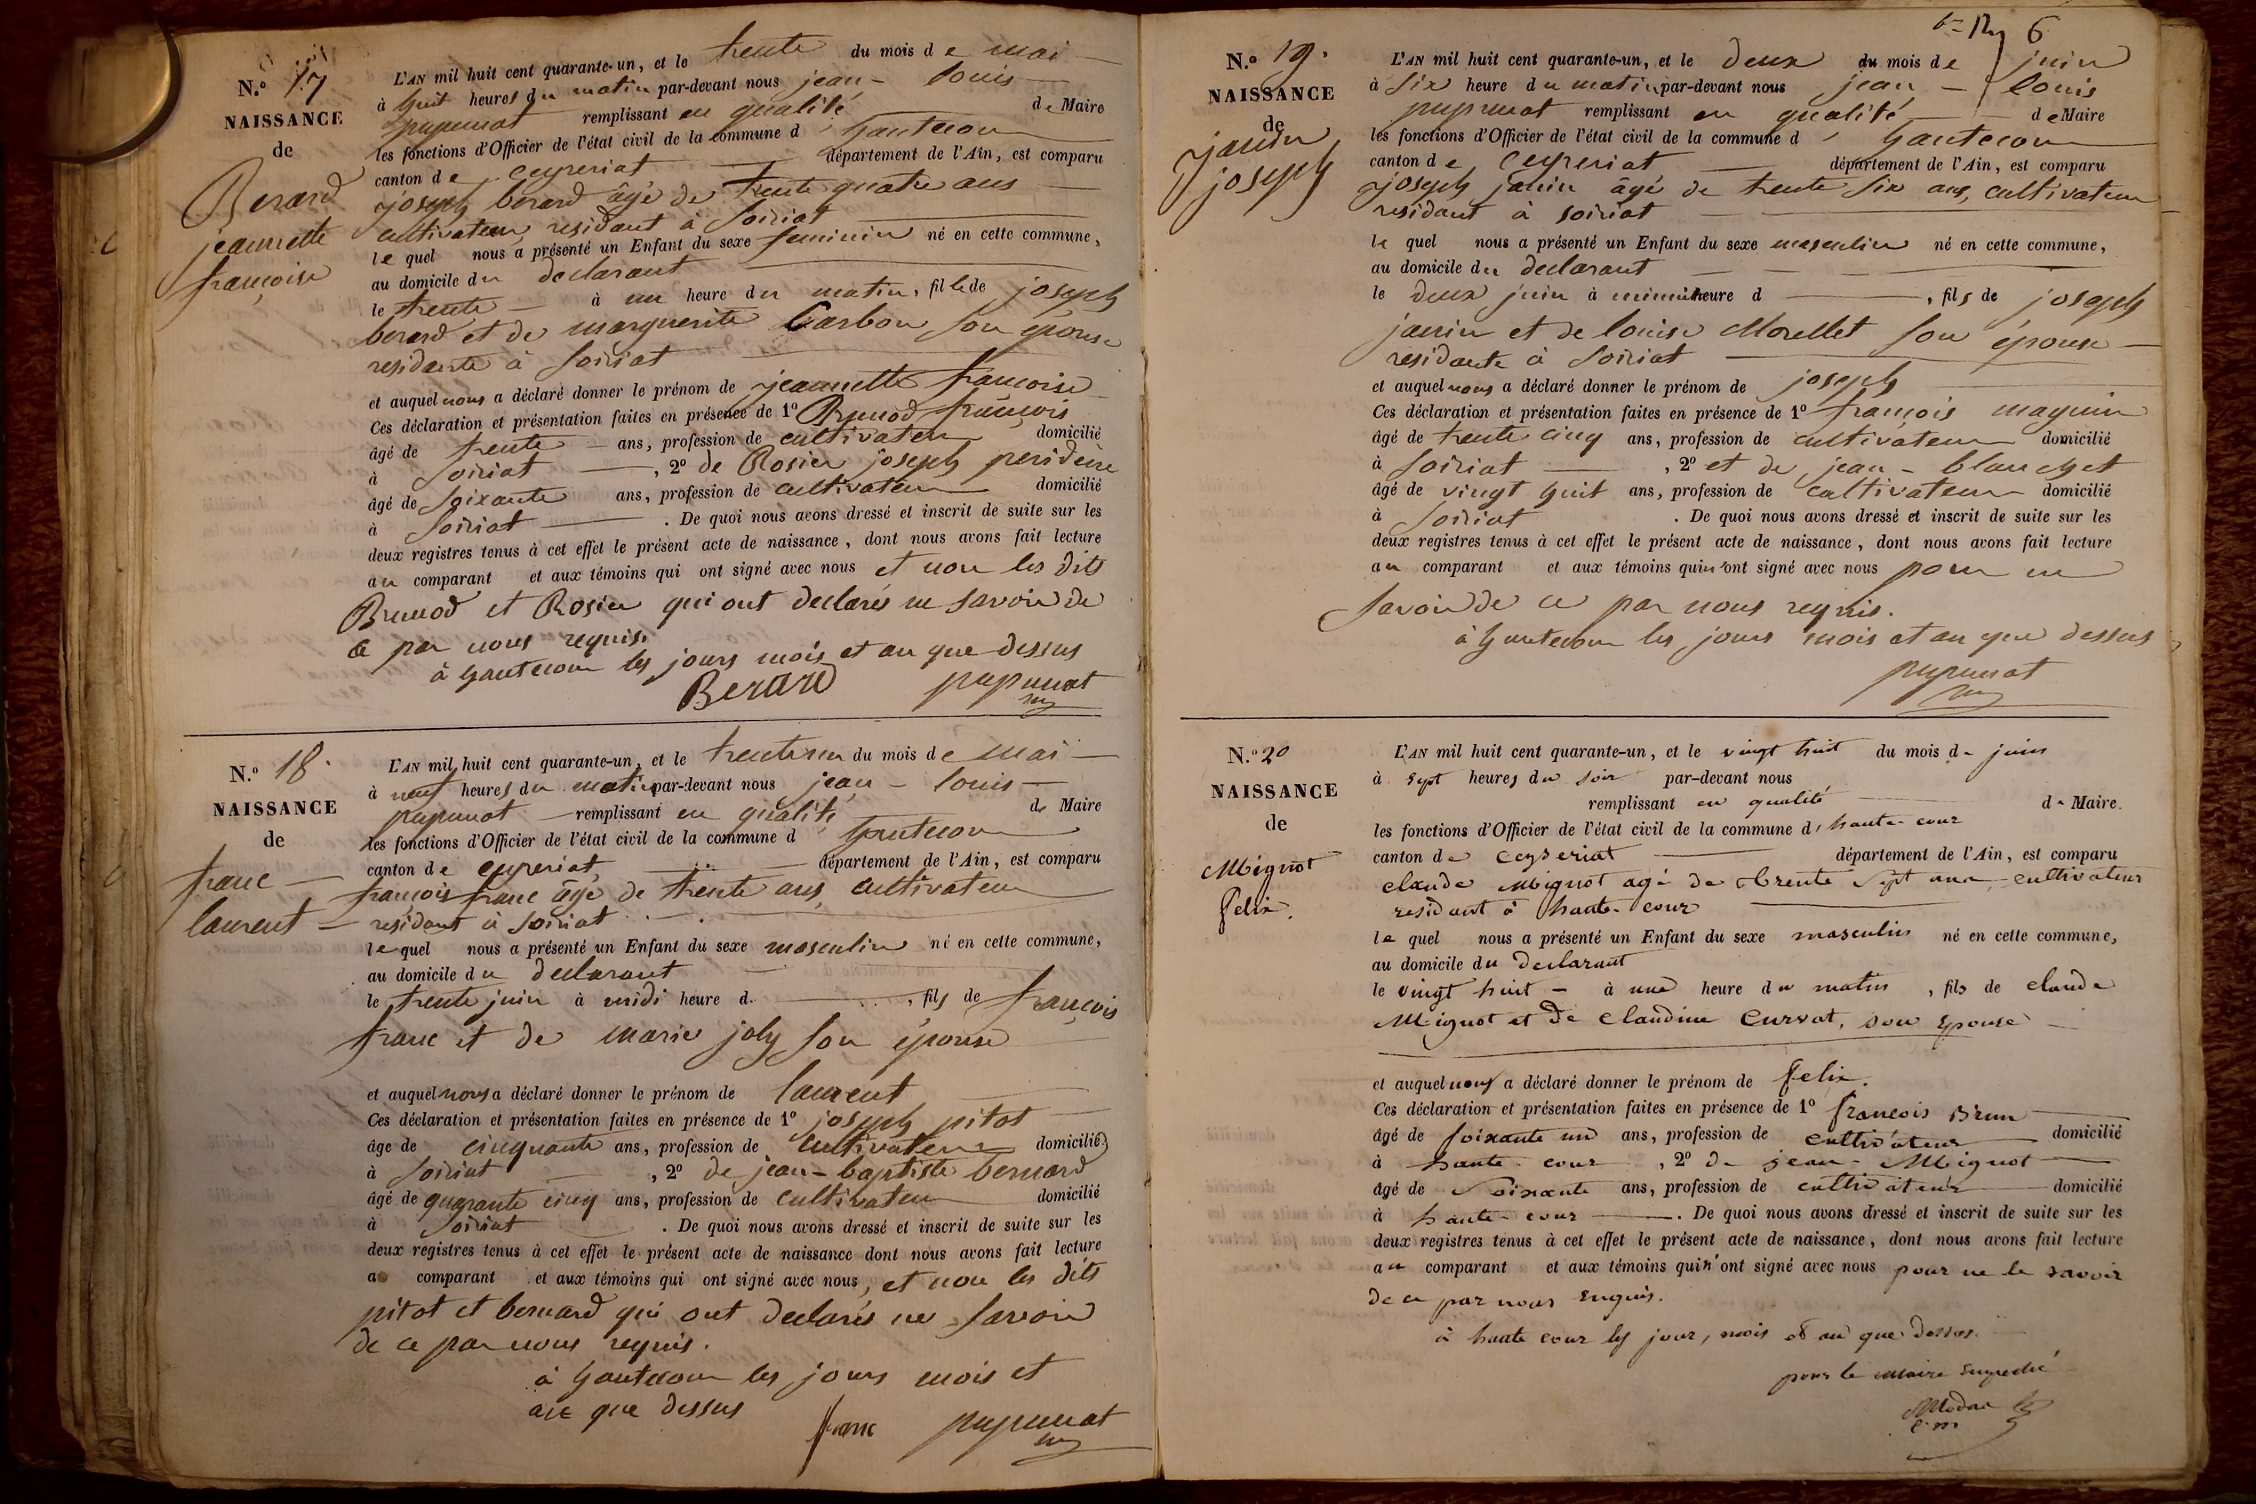 N.º 17
NAISSANCE
de
Berard
jeannette
françoise
L'AN mil huit cent quarante-un, et le trente du mois de mai
à huit heures du matin par-devant nous jean-louis
pupunat remplissant en qualité de Maire
les fonctions d'Officier de l'état civil de la commune d'hautecour
canton de ceyzeriat département de l'Ain, est comparu
joseph berard âgé de trente quatre ans
cultivateur, residant à soiriat
lequel nous a présenté un Enfant du sexe feminin né en cette commune,
au domicile du declarant
le trente à une heure du matin, fille de joseph
berard et de marguerite Carbon son épouse
residante à soiriat
et auquel nous a déclaré donner le prénom de jeannette françoise
Ces déclaration et présentation faites en présence de 1º Brunod françois
âgé de trente ans, profession de cultivateur domicilié
à soiriat, 2º de Rosier joseph
âgé de soixante ans, profession de cultivateur domicilié
à soiriat. De quoi nous avons dressé et inscrit de suite sur les
deux registres tenus à cet effet le présent acte de naissance, dont nous avons fait lecture
au comparant et aux témoins qui ont signé avec nous et non les dits
Brunod et Rosier qui ont declarés ne savoir de
ce par nous requis.
à hautecour les jours mois et an que dessus
Berard pupunat
N.º 18.
NAISSANCE
de
franc
laurent
L'AN mil huit cent quarante-un, et le trente un du mois de mai
à neuf heures du matin par-devant nous jean-louis
pupunat remplissant en qualité de Maire
les fonctions d'Officier de l'état civil de la commune d'hautecour
canton de ceyzeriat département de l'Ain, est comparu
françois franc âgé de trente ans, cultivateur
residant à soiriat
lequel nous a présenté un Enfant du sexe masculin né en cette commune,
au domicile du declarant
le trente juin à midi heure d, fils de françois
franc et de marie joly son épouse
et auquel nous a déclaré donner le prénom de laurent
Ces déclaration et présentation faites en présence de 1º joseph pitot
âge de cinquante ans, profession de cultivateur domicilié
à soiriat, 2º de jean-baptiste bernard
âgé de quarante cinq ans, profession de cultivateur domicilié
à soiriat. De quoi nous avons dressé et inscrit de suite sur les
deux registres tenus à cet effet le présent acte de naissance dont nous avons fait lecture
au comparant et aux témoins qui ont signé avec nous, et non les dits
pitot et bernard qui ont declarés ne savoir
de ce par nous requis.
à hautecour les jours mois et
an que dessus
franc pupunat
6
N.º 19.
NAISSANCE
de
janin
joseph
L'AN mil huit cent quarante-un, et le deux du mois de juin
à six heure du matin par-devant nous jean-louis
pupunat remplissant en qualité de Maire
les fonctions d'Officier de l'état civil de la commune d'hautecour
canton de ceyzeriat département de l'Ain, est comparu
joseph janin âgé de trente six ans, cultivateur
residant à soiriat
lequel nous a présenté un Enfant du sexe masculin né en cette commune,
au domicile du declarant
le deux juin à minuit heure d, fils de joseph
janin et de louise Morellet son épouse
residante à soiriat
et auquel nous a déclaré donner le prénom de joseph
Ces déclaration et présentation faites en présence de 1º françois maguin
âgé de trente cinq ans, profession de cultivateur domicilié
à soiriat, 2º et de jean-blanchet
âgé de vingt huit ans, profession de cultivateur domicilié
à soiriat. De quoi nous avons dressé et inscrit de suite sur les
deux registres tenus à cet effet le présent acte de naissance, dont nous avons fait lecture
au comparant et aux témoins qui n'ont signé avec nous pour ne
savoir de ce par nous requis.
à hautecour les jours mois et an que dessus
pupunat
N.º 20
NAISSANCE
de
Mignot
felix.
L'AN mil huit cent quarante-un, et le vingt huit du mois de juin
à sept heures du soir par-devant nous
remplissant en qualité de Maire.
les fonctions d'Officier de l'état civil de la commune d'haute-cour
canton de ceyseriat département de l'Ain, est comparu
claude Mignot agé de trente sept ans cultivateur
residant à haute-cour
lequel nous a présenté un Enfant du sexe masculin né en cette commune,
au domicile du declarant
le vingt huit - à une heure du matin, fils de claude
Mignot et de claudine Curvat, son epouse
et auquel nous a déclaré donner le prénom de felix.
Ces déclaration et présentation faites en présence de 1º francois Brun
âgé de soixante un ans, profession de cultivateur domicilié
à haute-cour, 2º de jean-Mignot
âgé de soixante ans, profession de cultivateur domicilié
à haute-cour. De quoi nous avons dressé et inscrit de suite sur les
deux registres tenus à cet effet le présent acte de naissance, dont nous avons fait lecture
au comparant et aux témoins qui n'ont signé avec nous pour ne le savoir
de ce par nous enquis.
à haute cour les jour, mois et an que dessus.
pour le maire empeché